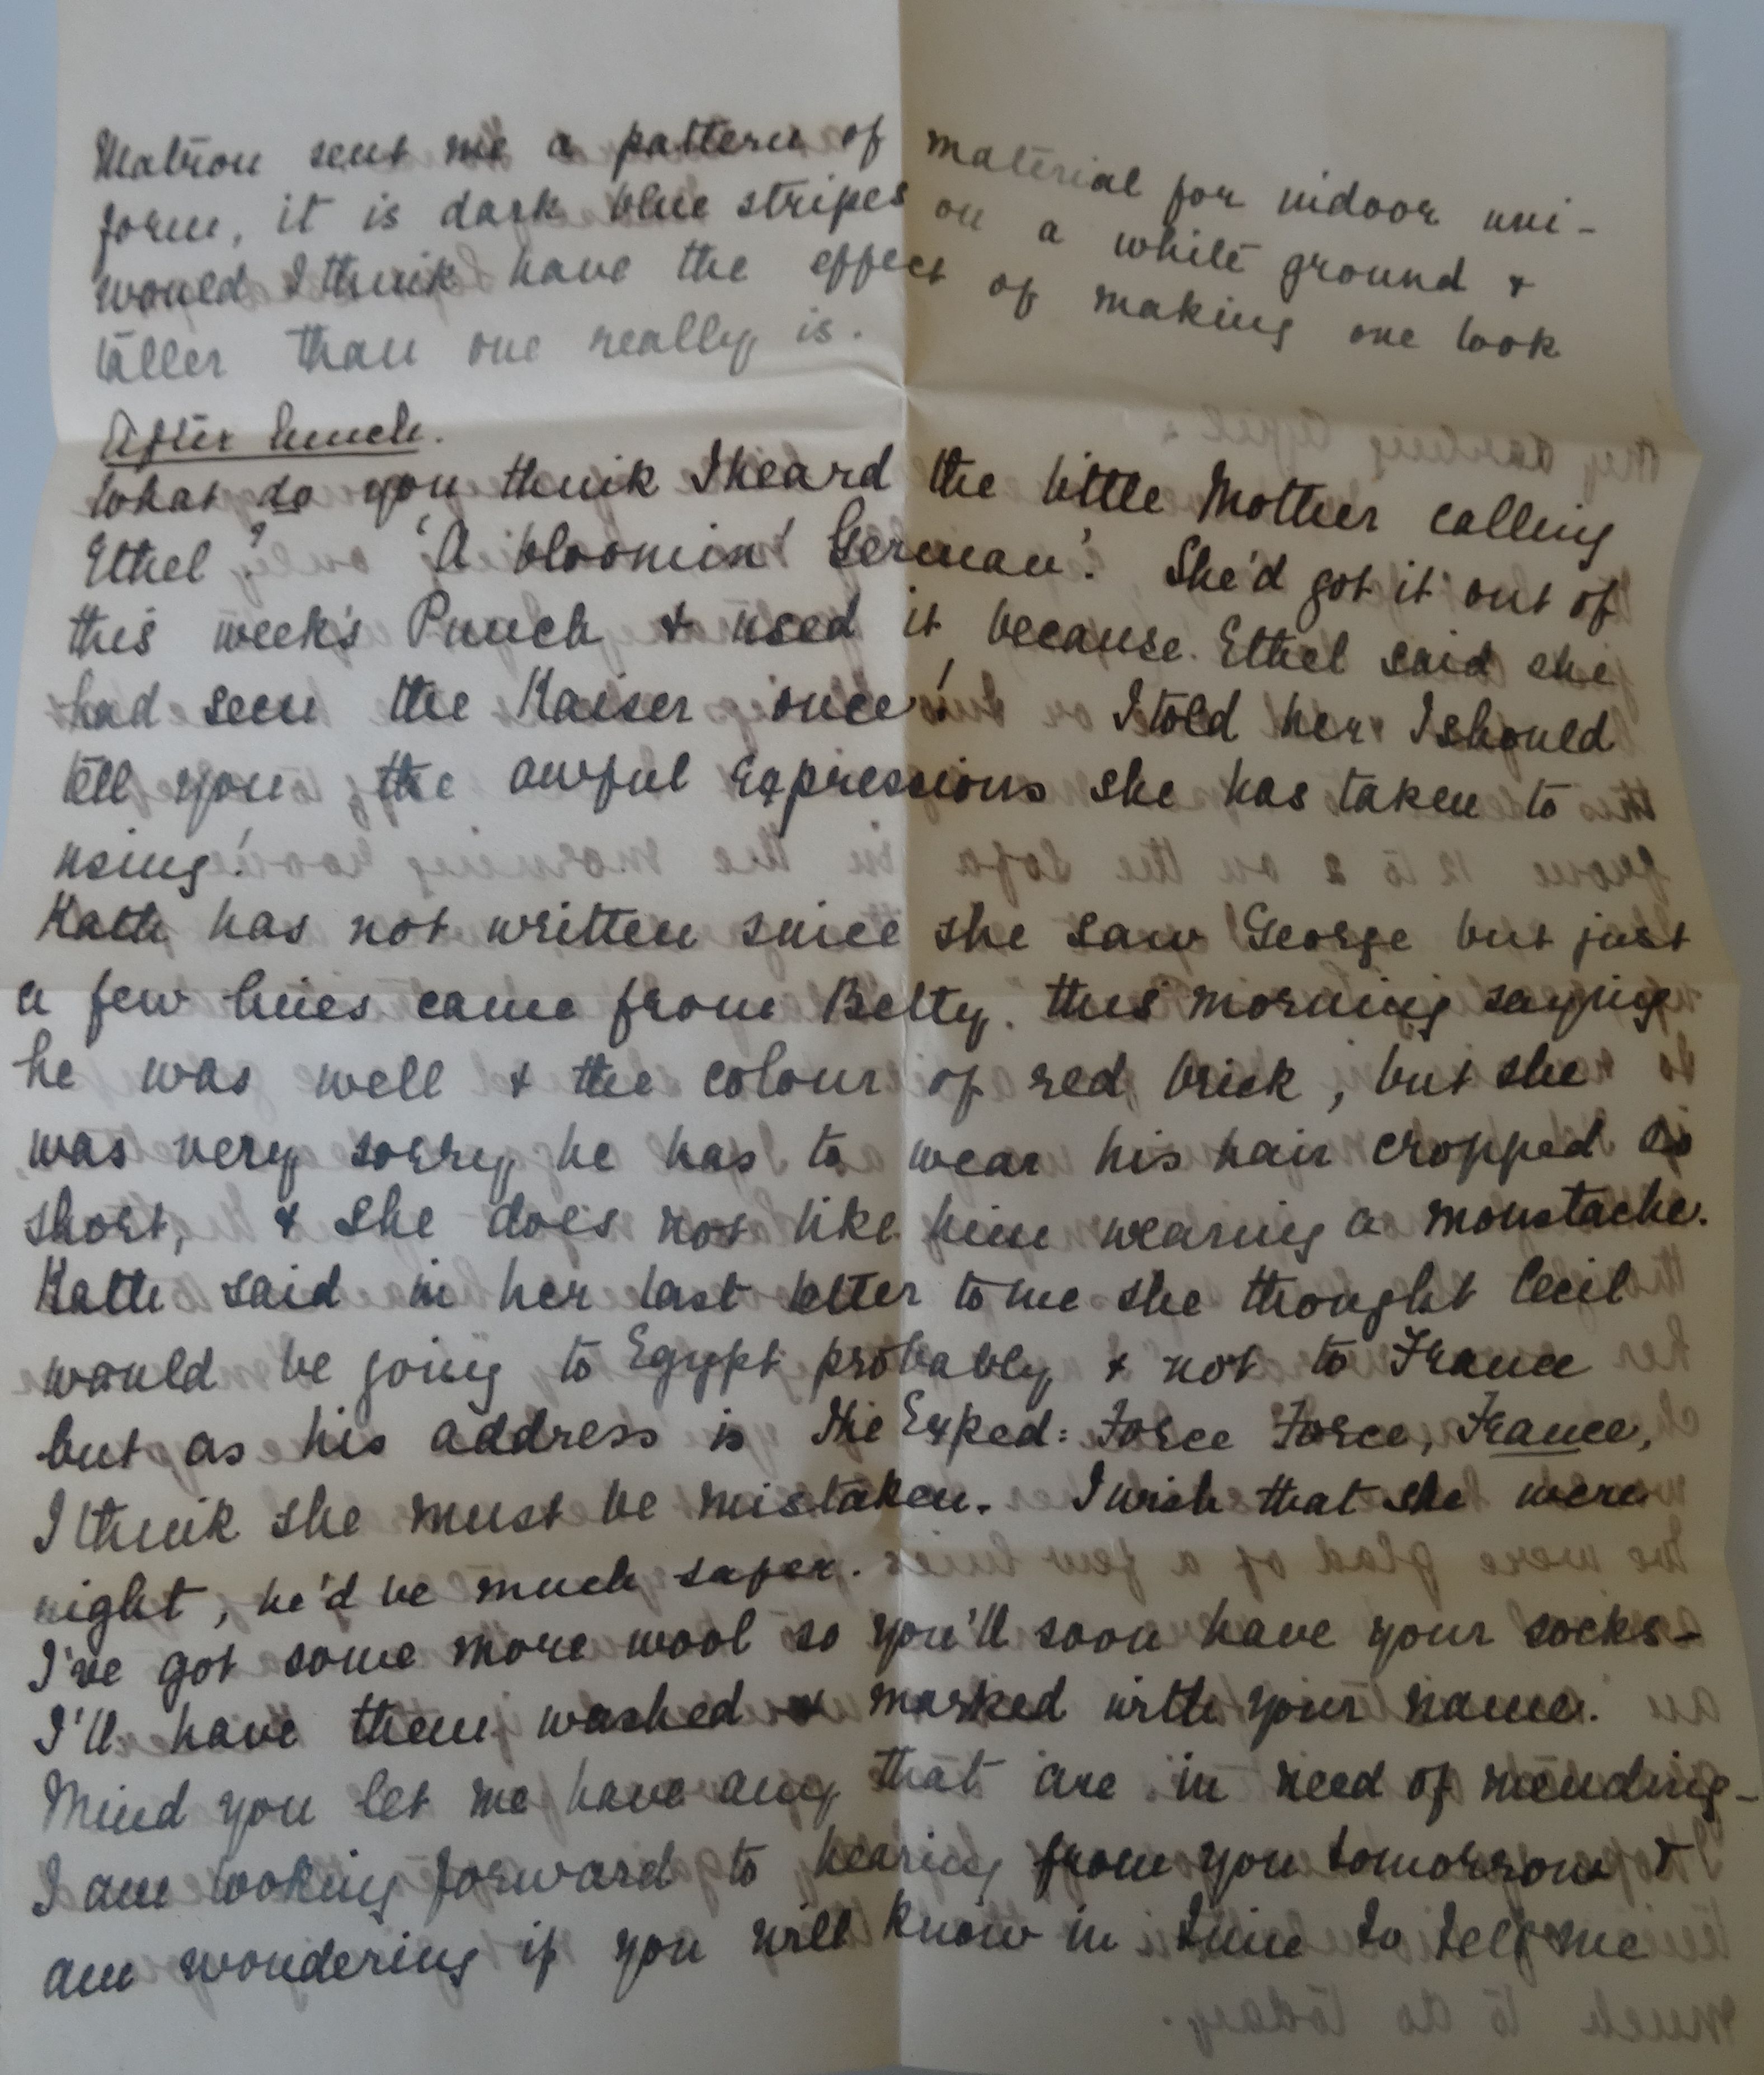 Matron sent me a pattern of material for indoor uni-
form, it is dark blue stripes on a white ground &
would I think have the effect of making one look
taller than one really is.
After lunch.
What do you think I heard the little Mother calling
Ethel? 'A bloomin' German'. She'd got it out of
this week's Punch & used it because Ethel said she
had seen the Kaiser once! I told her I should
tell you the awful expressions she has taken to
using!
Kath has not written since she saw George but just
a few lines came from Betty this morning saying
he was well & the colour of red brick, but she
was very sorry he has to wear his hair cropped so
short, & she does not like him wearing a moustache.
Kath said in her last letter to me she thought Cecil
would be going to Egypt probably & not to France
but as his address is the Exped: Force Force, France,
I think she must be mistaken. I wish that she were
right, he'd be much safer.
I've got some more wool so you'll soon have your socks-
I'll have them washed & marked with your name.
Mind you let me have any that are in need of mending-
I am looking forward to hearing from you tomorrow &
am wondering if you will know in time to tell me